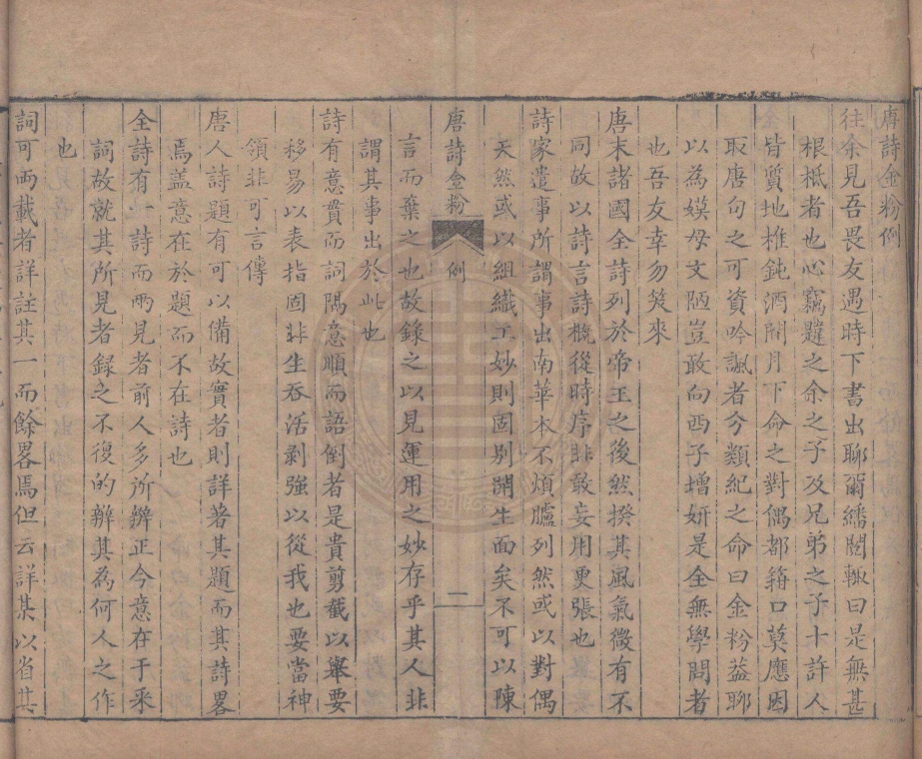 唐詩金粉例
往余見吾畏友遇時下書出聊爾繙閱輙曰是無甚
根柢者也心竊韙之余之子及兄弟之子十許人
皆質地椎鈍酒閒月下命之對偶都籍口莫應因
取唐句之可資吟諷者分類紀之命曰金粉葢聊
以為嫫母文陋豈敢向西子增妍是全無學問者
也吾友幸勿笑來
唐末諸國全詩列於帝王之後然揆其風氣微有不
同故以詩言詩概從時序非敢妄用更張也
詩家遣事所謂事出南華本不煩臚列然或以對偶
天然或以組織工妙則固別開生面矣不可以陳
唐詩金粉 例 二
言而棄之也故錄之以見運用之妙存乎其人非
謂其事出於此也
詩有意貫而詞隔意順而語倒者是貴剪截以舉要
移易以表指固非生吞活剝強以從我也要當神
領非可言傳
唐人詩題有可以備故實者則詳著其題而其詩畧
焉盖意在於題而不在詩也
全詩有一詩而兩見者前人多所辨正今意在于采
詞故就其所見者録之不復的辨其為何人之作
也
詞可両載者詳註其一而餘畧焉但云詳某以省其